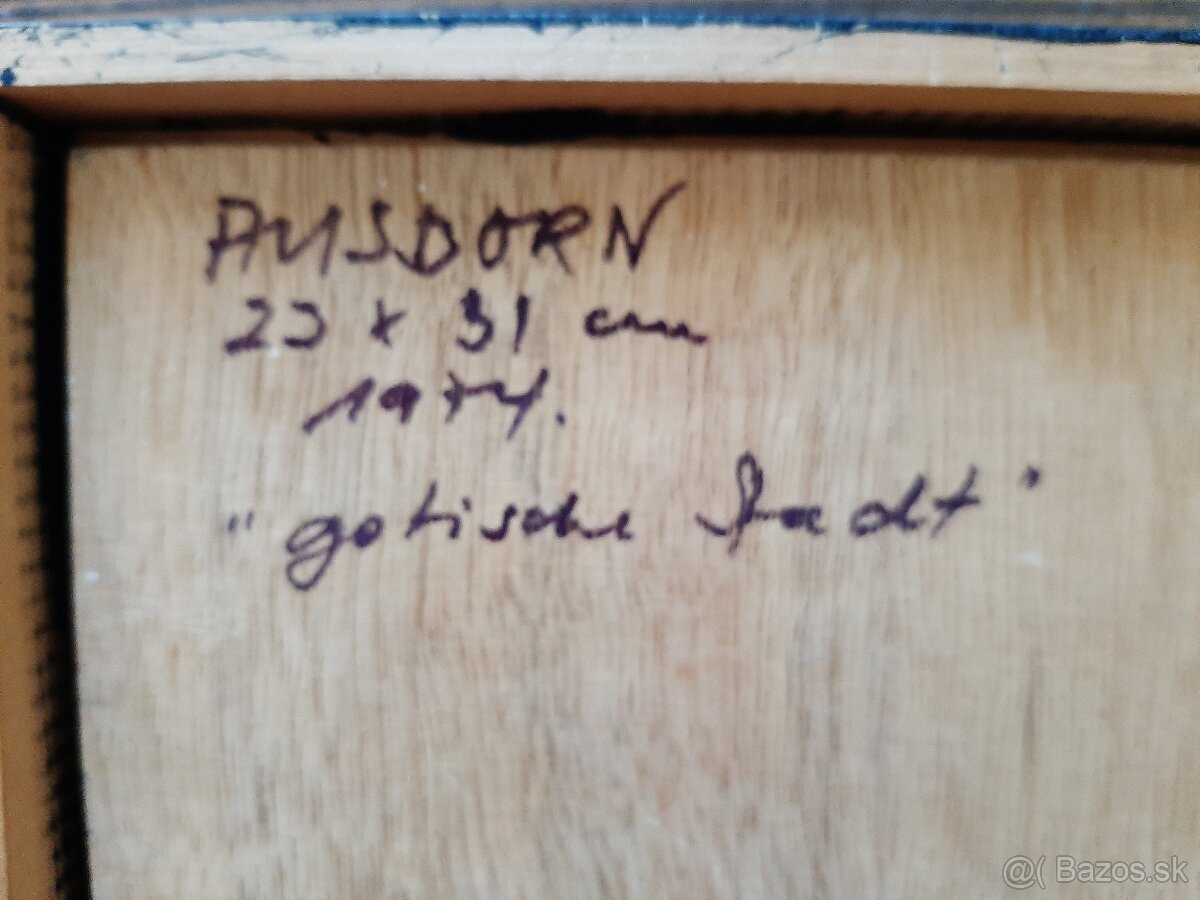 AUSDORN
23 x 31 cm
1974.
"gotische Stadt"
@( Bazos.sk